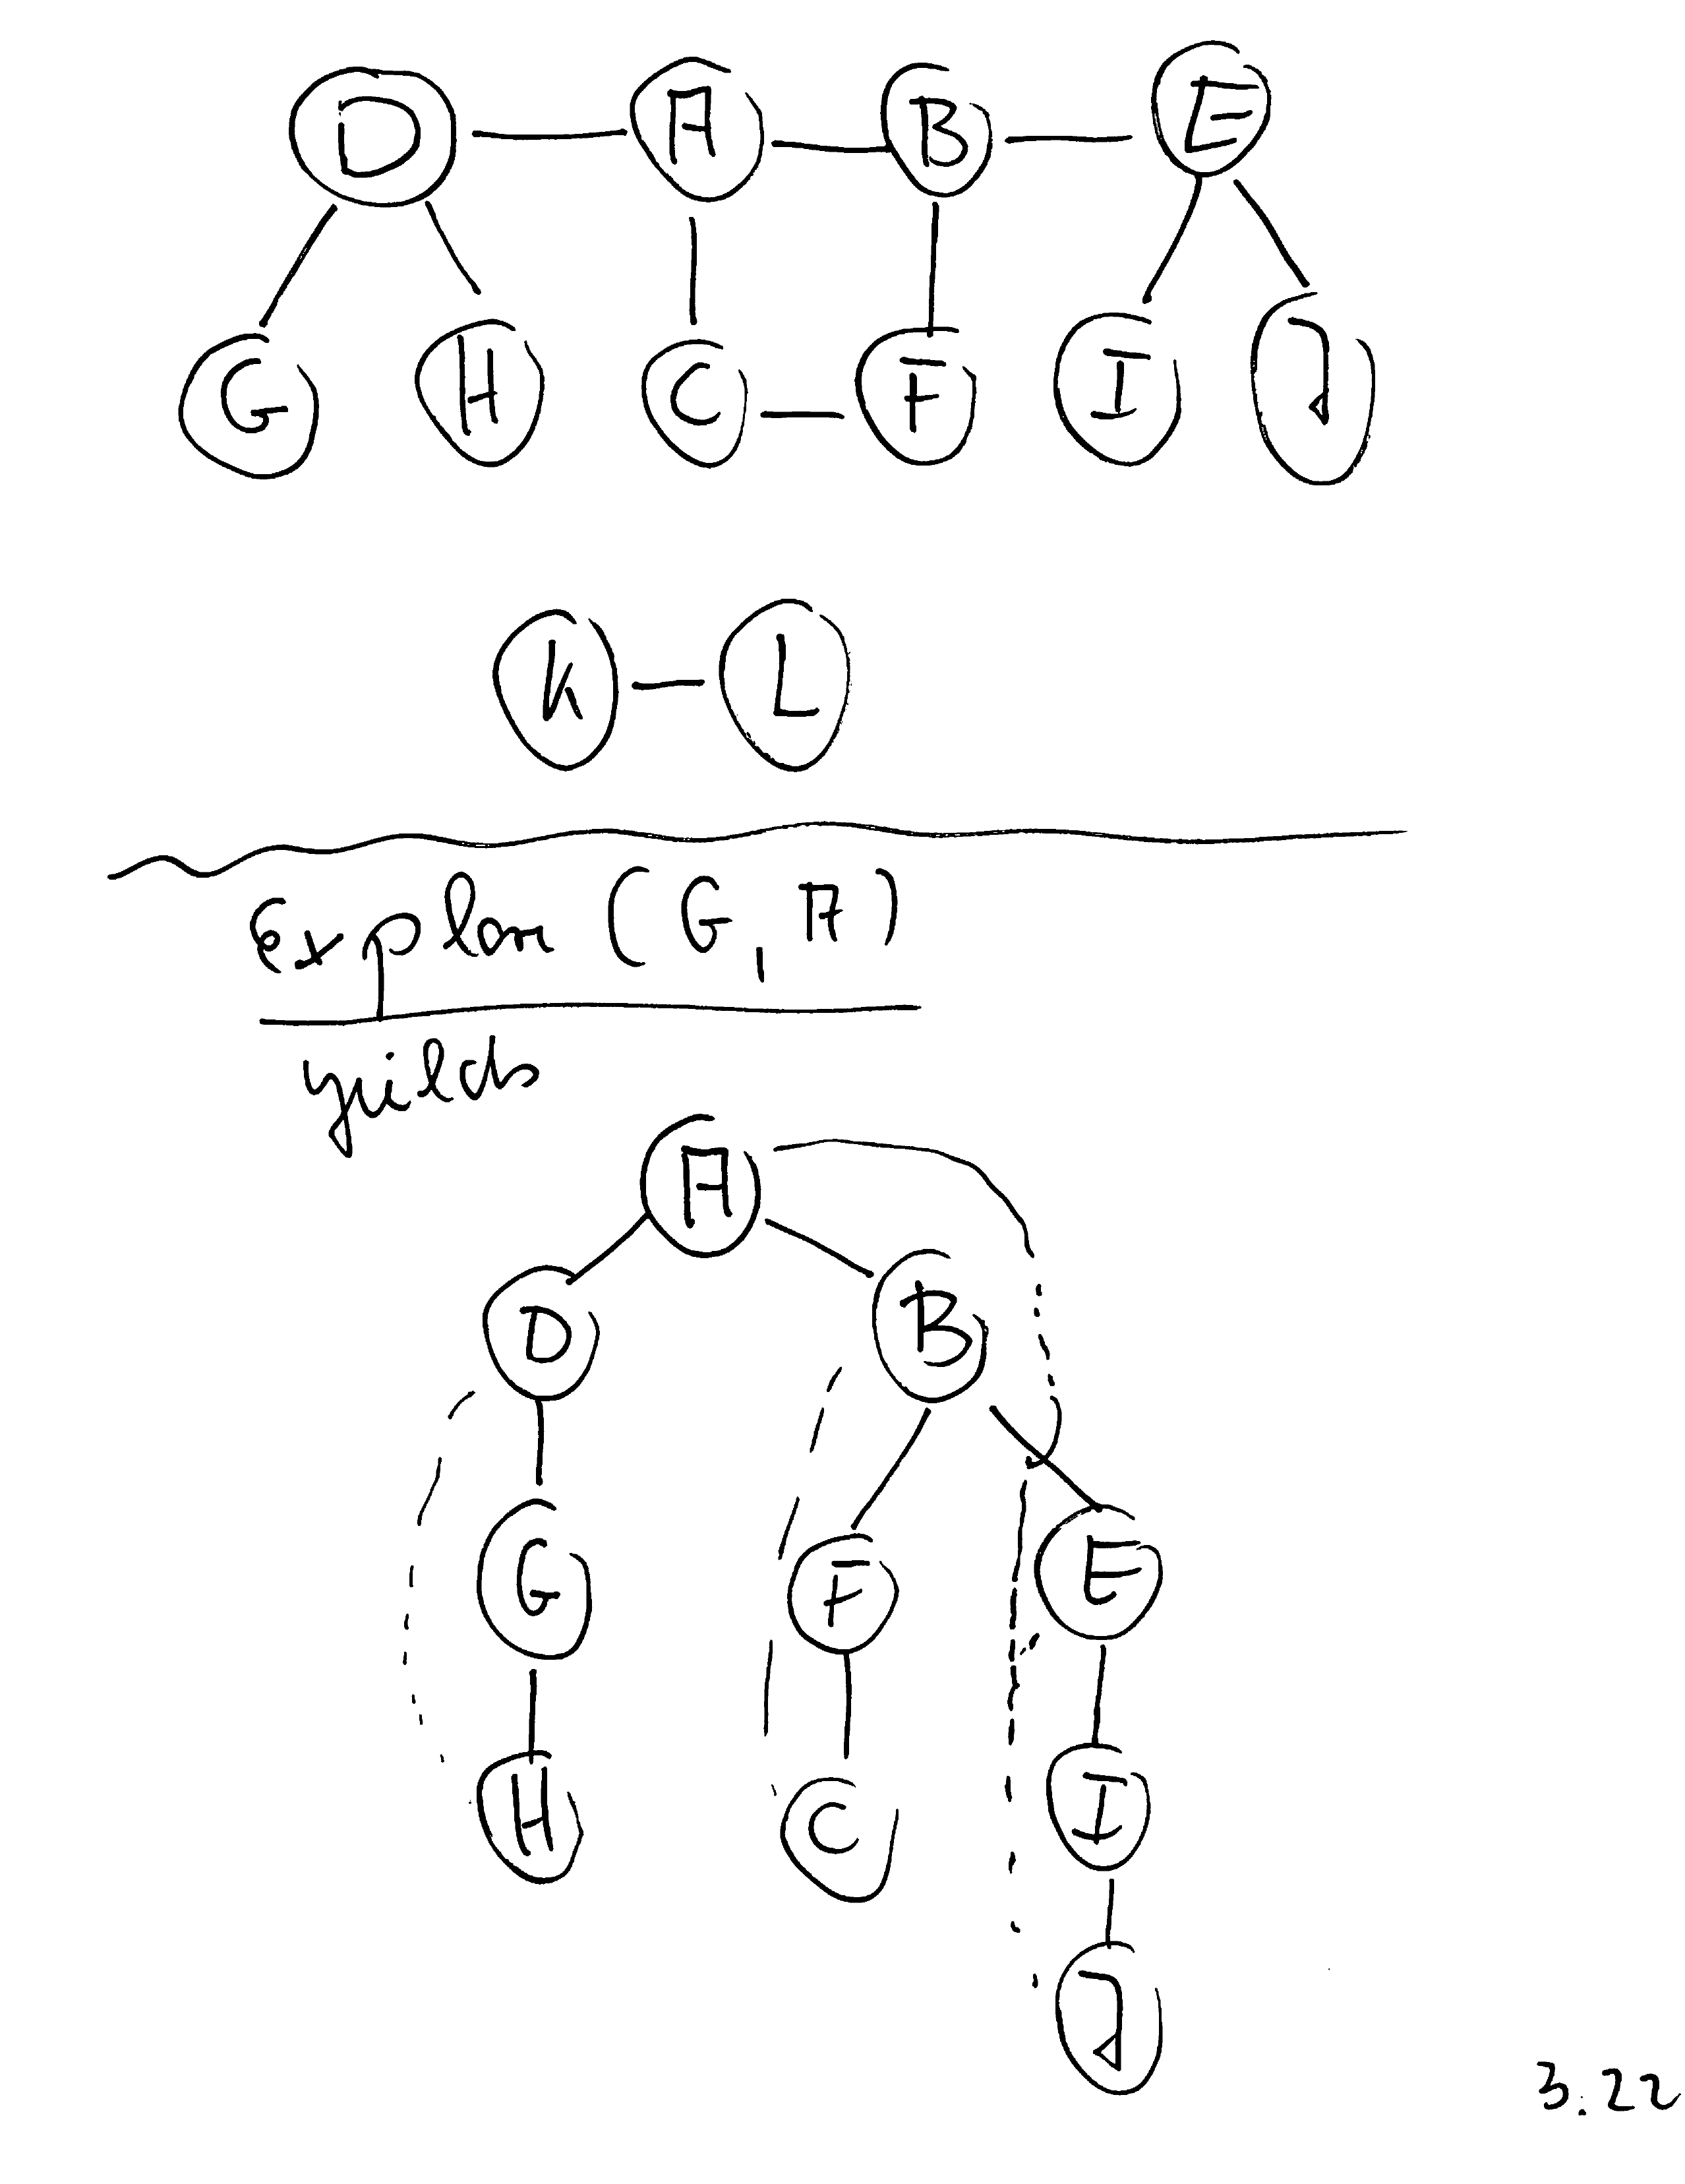 D A B E
G H C F I J
K L
Explore (G, A)
yields
A
D B
G F E
H C I
J
3.22